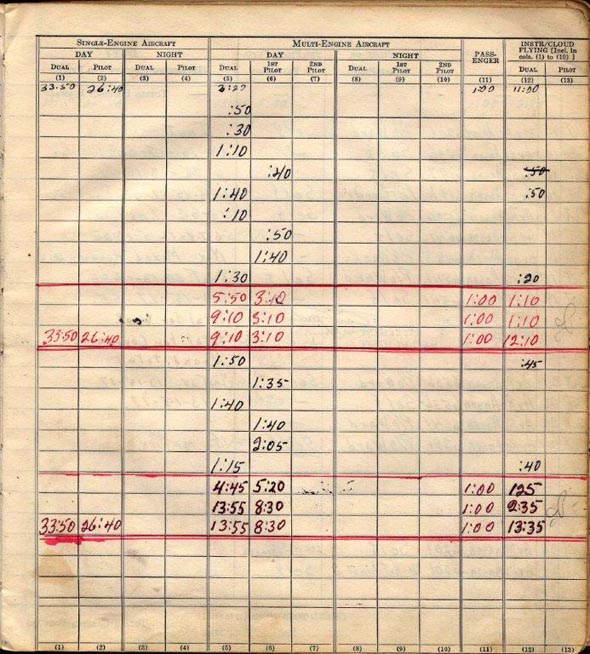 SINGLE-ENGINE AIRCRAFT MULTI-ENGINE AIRCRAFT PASS-ENGER INSTR/CLOUD FLYING [Incl. in cols. (1) to (10) ]
DAY NIGHT DAY NIGHT
DUAL PILOT DUAL PILOT DUAL 1ST PILOT 2ND PILOT DUAL 1ST PILOT 2ND PILOT DUAL PILOT
(1) (2) (3) (4) (5) (6) (7) (8) (9) (10) (11) (12) (13)
33:50 26:40 3:20 1:00 11:00
:50
:30
1:10
:40 :50
1:40 :50
:10
:50
1:40
1:30 :20
5:50 3:10 1:00 1:10
9:10 3:10 1:00 1:10
33:50 26:40 9:10 3:10 1:00 12:10
1:50 :45
1:35
1:40
1:40
2:05
1:15 :40
4:45 5:20 1:00 125
13:55 8:30 1:00 2:35
33:50 26:40 13:55 8:30 1:00 13:35
(1) (2) (3) (4) (5) (6) (7) (8) (9) (10) (11) (12) (13)